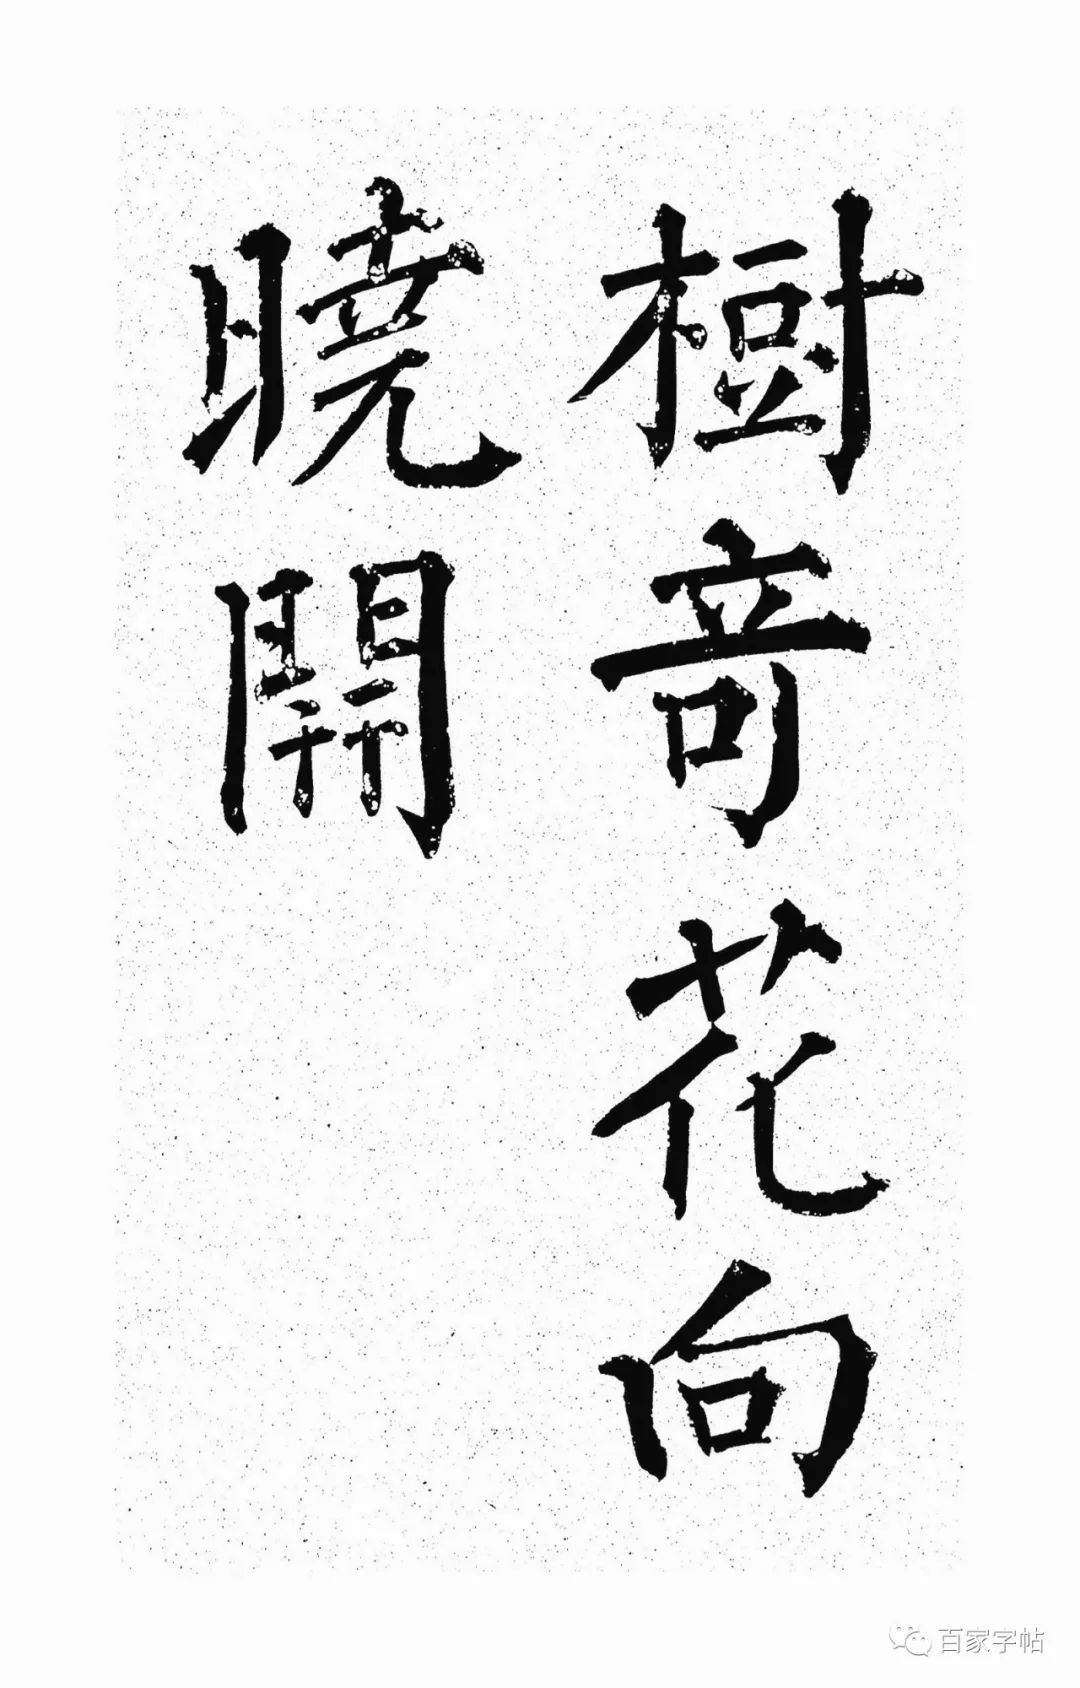 樹竒花向
曉開
百家字帖